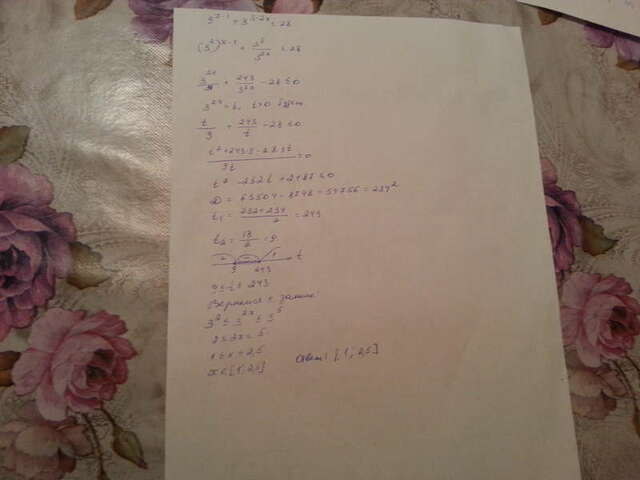 (3²)^(x-1) + 3⁵/3^(2x) ≤ 28
3^(2x)/9 + 243/3^(2x) - 28 ≤ 0
3^(2x) = t, t>0
t/9 + 243/t - 28 ≤ 0
t² + 243·9 - 28·9t / 9t ≤ 0
t² - 252t + 2187 ≤ 0
D = 63504 - 8748 = 54756 = 234²
t₁ = (252+234)/2 = 243
t₂ = 18/2 = 9
+ - + t
9 243
9 ≤ t ≤ 243
Вернемся к замене:
3² ≤ 3^(2x) ≤ 3⁵
2 ≤ 2x ≤ 5
1 ≤ x ≤ 2,5
x ∈ [1; 2,5] Ответ: [1; 2,5]